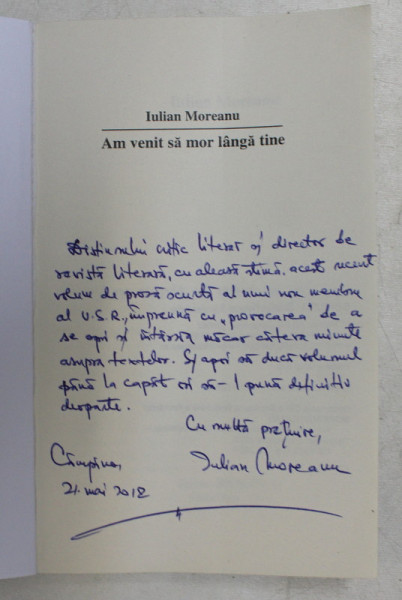 Iulian Moreanu
Am venit să mor lângă tine
Distinsului critic literar și director de
revistă literară, cu aleasă stimă, acest recent
volum de proză scurtă al unui nou membru
al U.S.R., împreună cu „provocarea” de a
se opri și întârzia măcar câteva minute
asupra textelor. Și apoi să ducă volumul
până la capăt ori să-l pună definitiv
deoparte.
Cu multă prețuire,
Câmpina, Iulian Moreanu
21 mai 2012